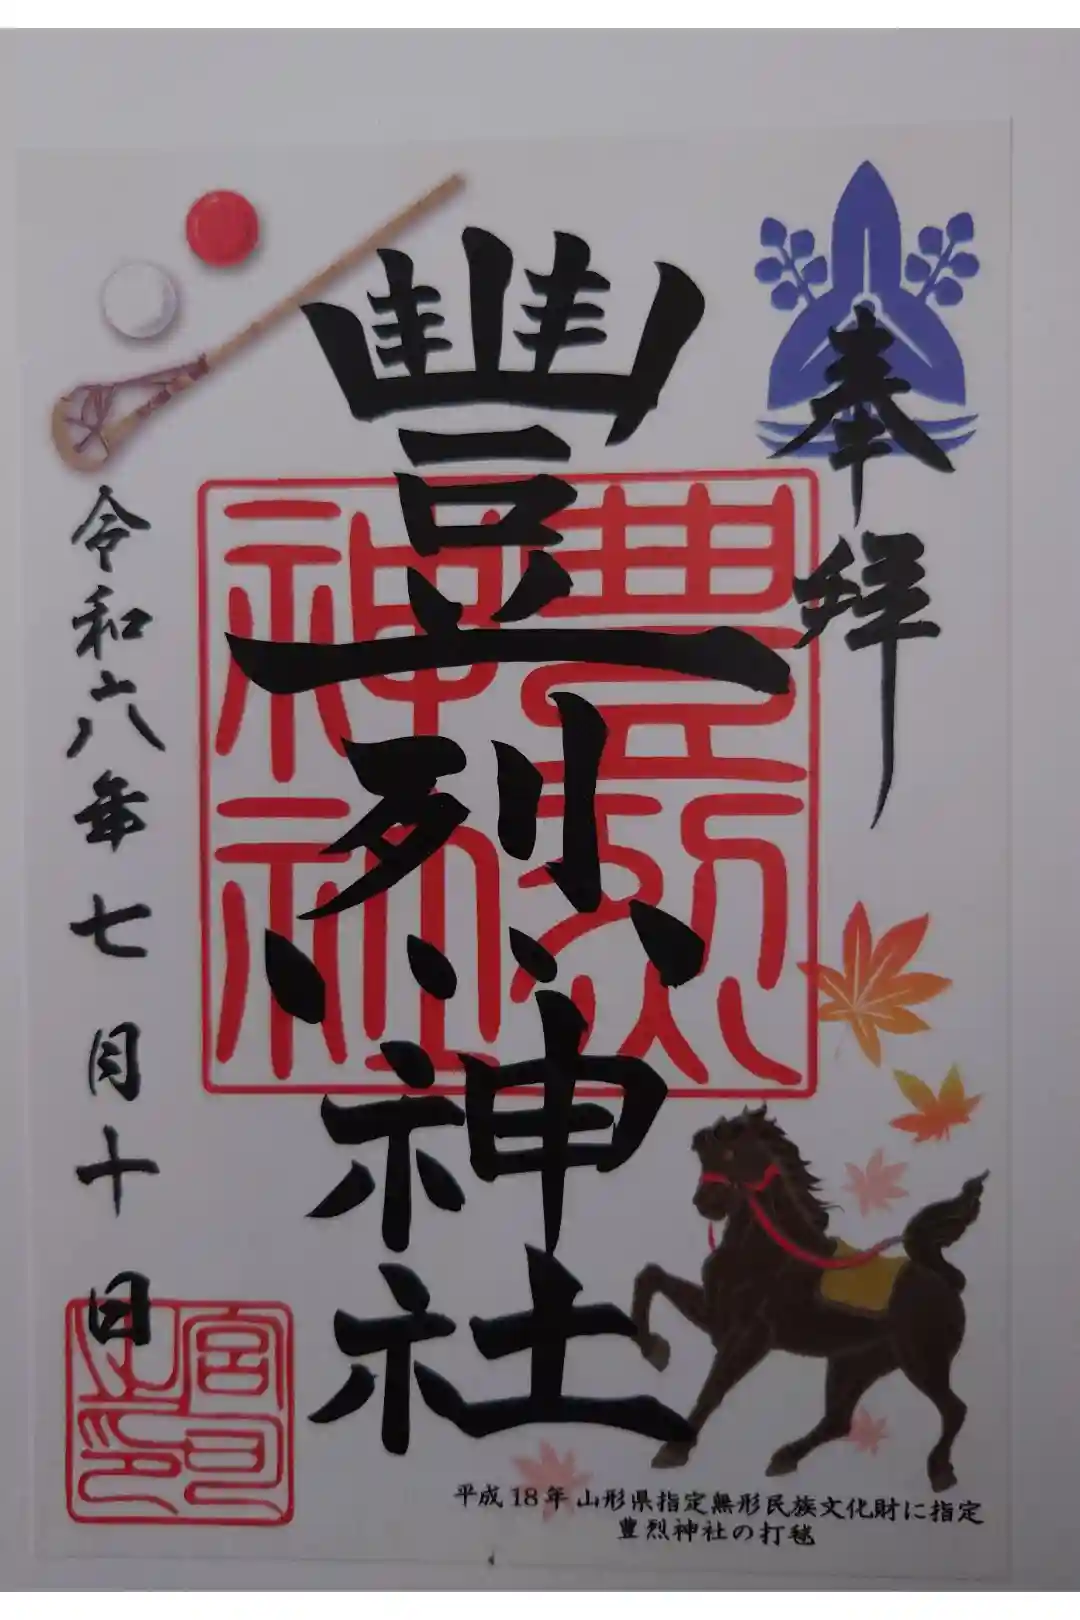 奉拝
豐烈神社
豊烈神社
令和六年七月十日
宮司之印
平成18年 山形県指定無形民族文化財に指定
豊烈神社の打毬